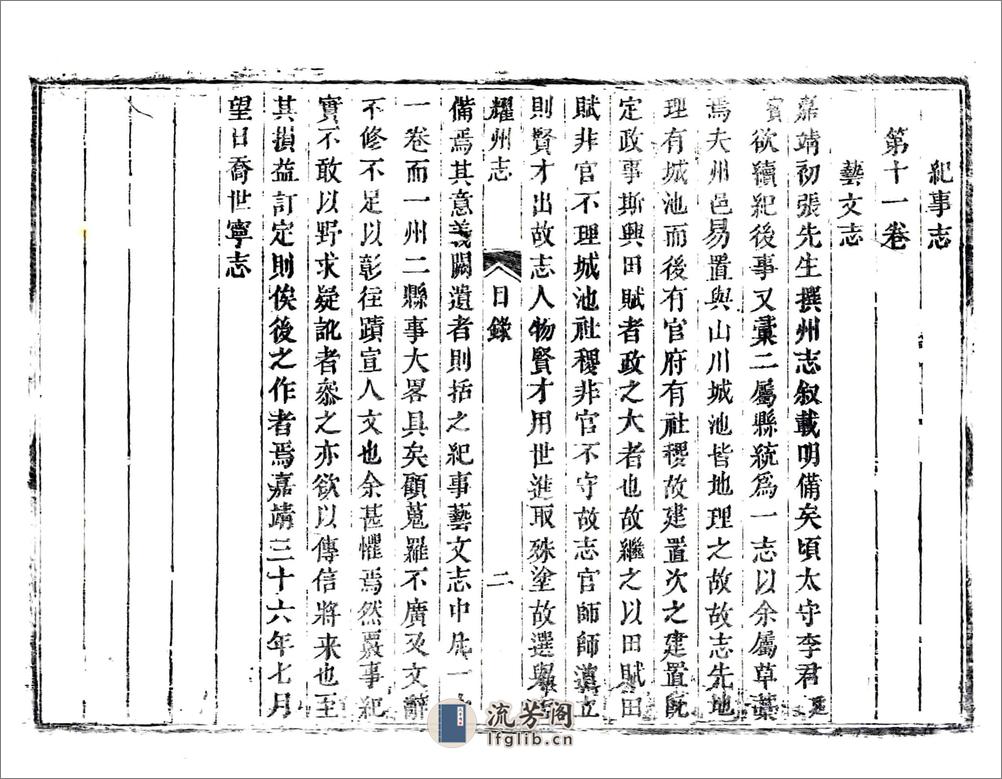 紀事志
第十一卷
藝文志
嘉靖初張先生撰州志叙載明備矣頃太守李君廷
寳欲續紀後事又彙二屬縣統爲一志以余屬草藁
焉夫州邑易置與山川城池皆地理之故故志先地
理有城池而後有官府有社稷故建置次之建置旣
定政事斯興田賦者政之大者也故繼之以田賦田
賦非官不理城池社稷非官不守故志官師師道立
則賢才出故志人物賢才用世進取殊塗故選舉
耀州志
目錄
二
備焉其意義闕遺者則括之紀事藝文志中凡一十
一卷而一州二縣事大畧具矣顧蒐羅不廣又文辭
不修不足以彰往蹟宣人文也余甚懼焉然覈事紀
實不敢以野求疑訛者叅之亦欲以傳信將来也至
其損益訂定則俟後之作者焉嘉靖三十六年七月
望日喬世寧志
流芳阁
lfglib.cn